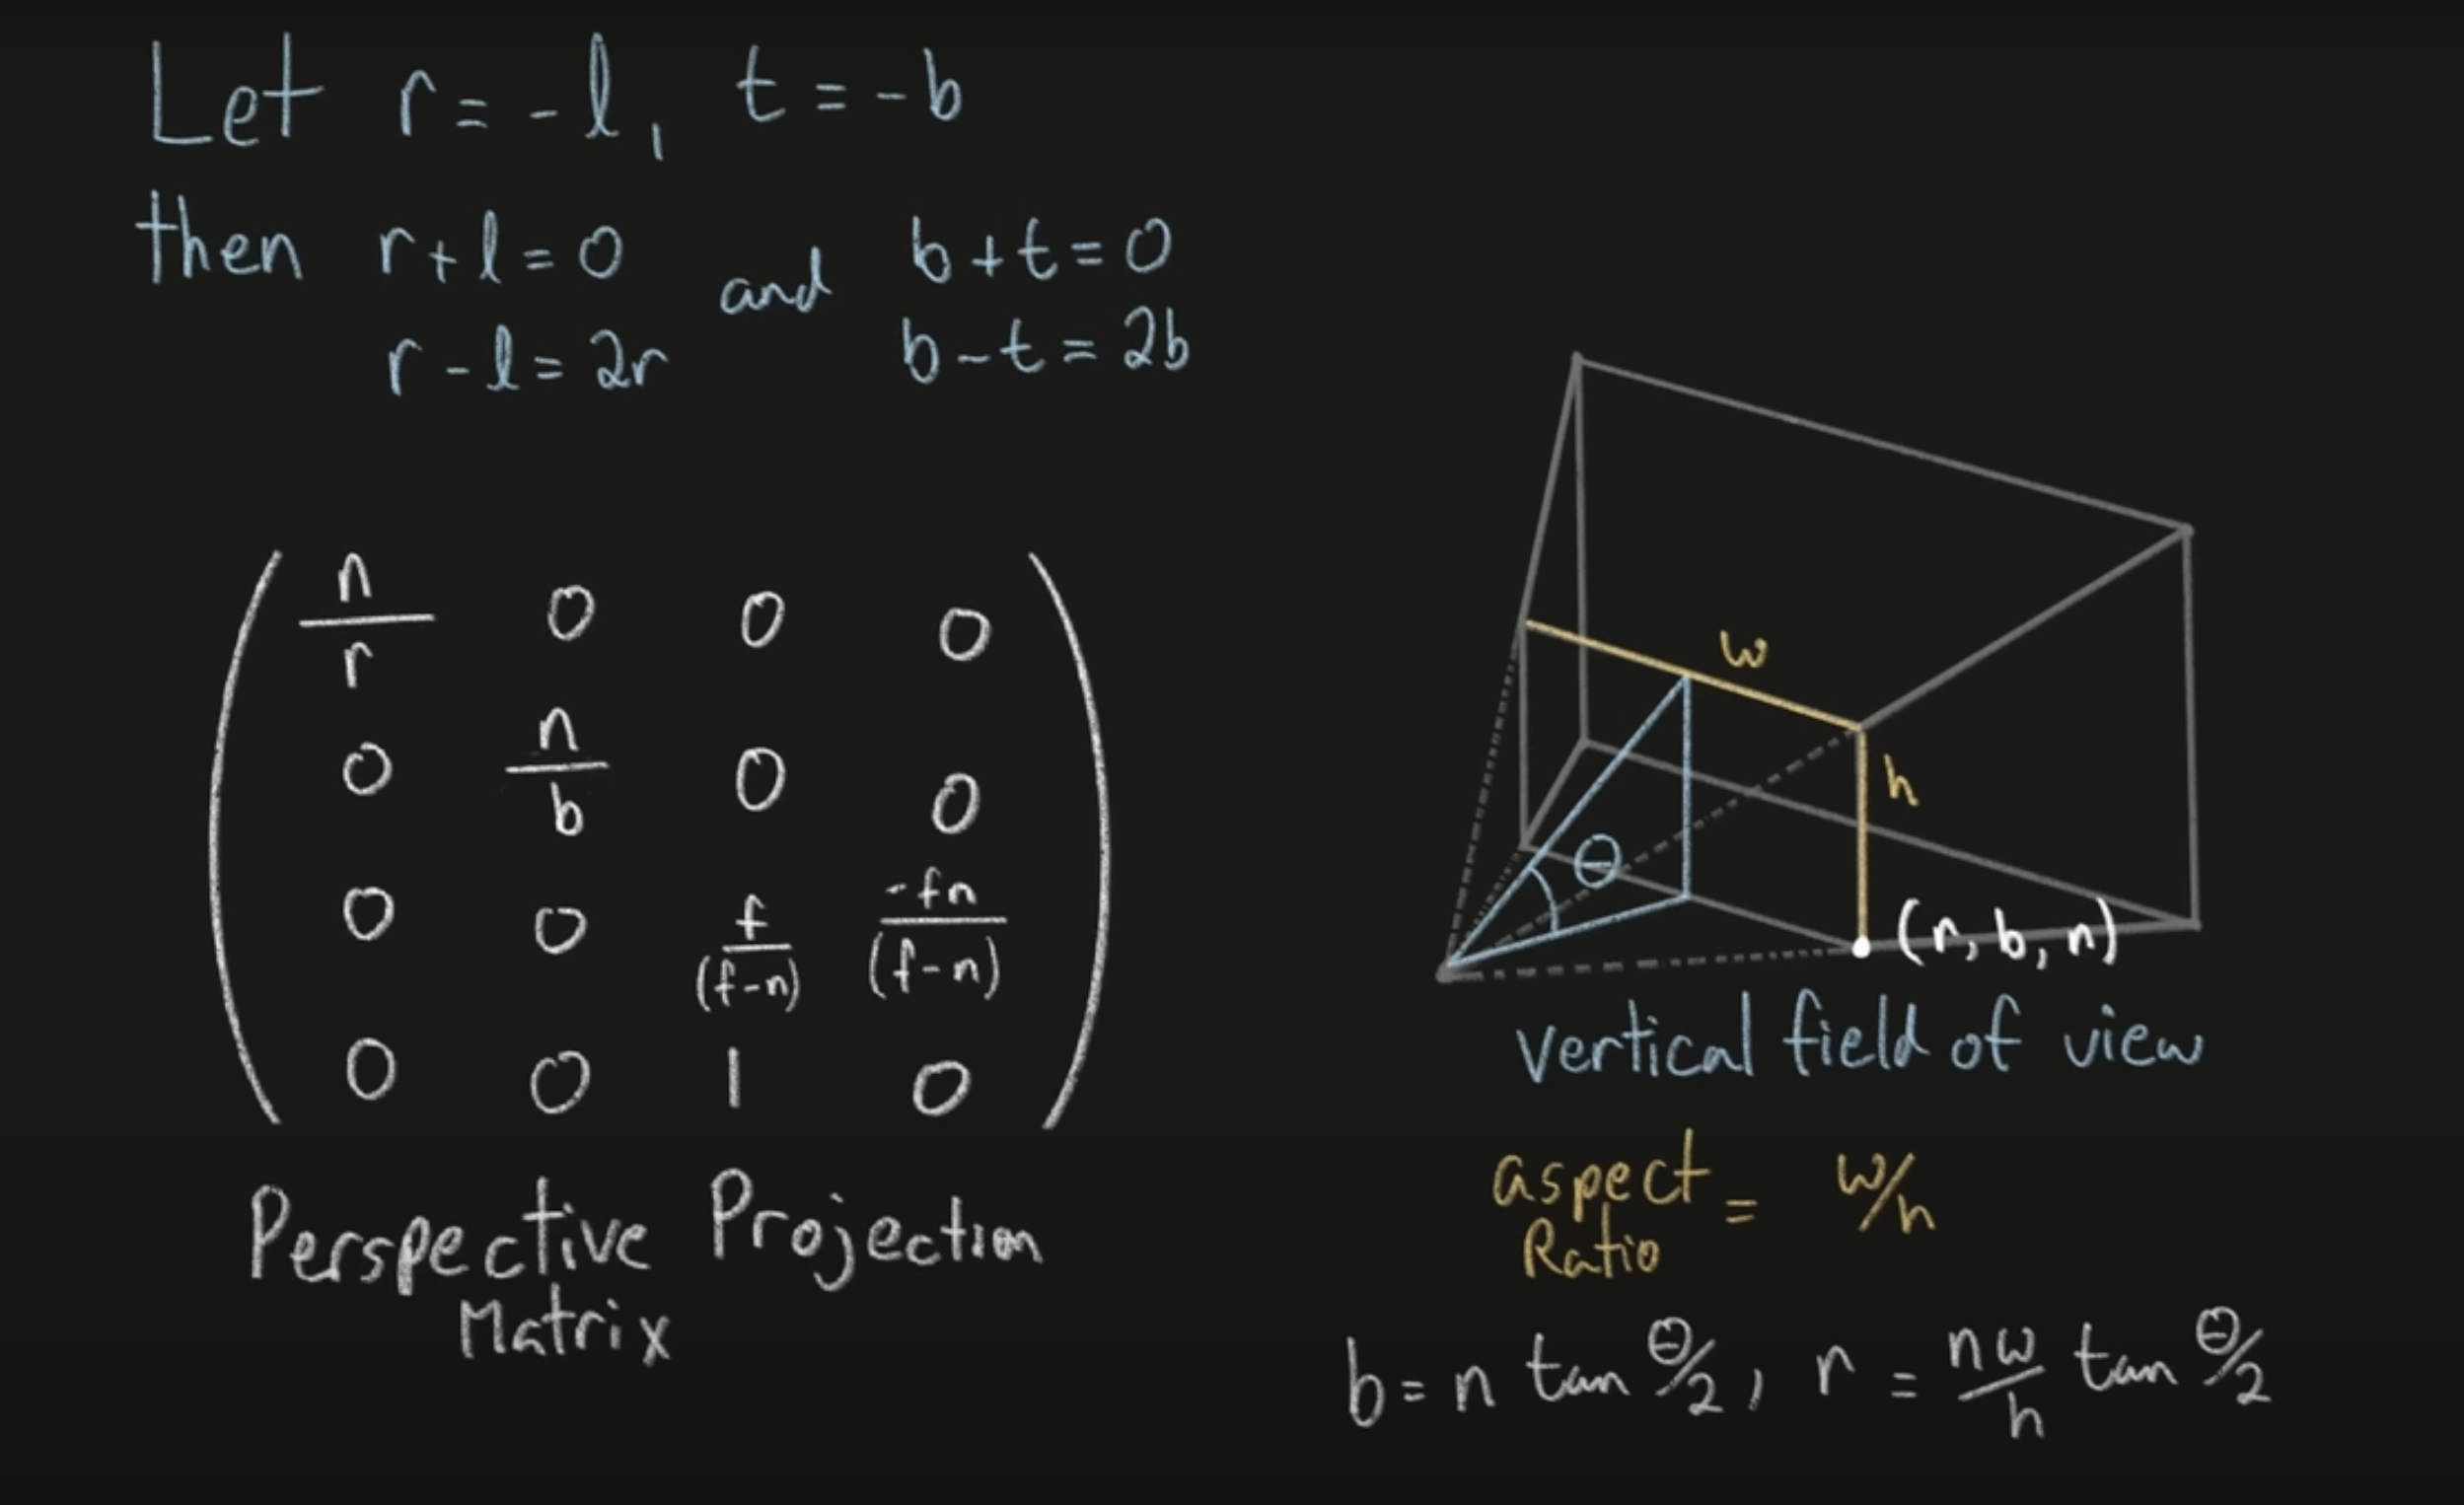 Let r = -l, t = -b
then r+l=0 and b+t=0
r-l=2r b-t=2b
n/r 0 0 0
0 n/b 0 0
0 0 f/(f-n) -fn/(f-n)
0 0 1 0
Perspective Projection
Matrix
w
h
θ
(r, b, n)
vertical field of view
aspect Ratio = w/h
b = n tan θ/2, r = nw/h tan θ/2